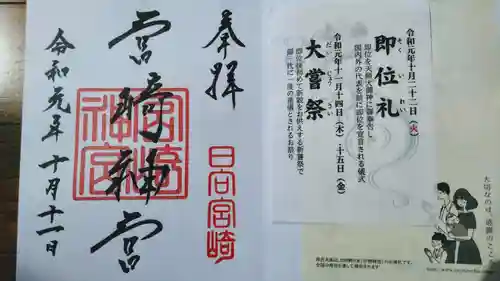 奉拝
日向宮崎
宮崎神宮
宮崎神宮
令和元年十月十一日
令和元年十月二十二日（火）
即位礼
そくいれい
即位を天照大御神に御奉告し
国内外の代表を前に即位を宣言される儀式
令和元年十一月十四日（木）・十五日（金）
大嘗祭
だいじょうさい
即位後初めて新穀をお供えする新嘗祭で
御一代に一度の重儀とされるお祭り
大切なのは、感謝のこころ